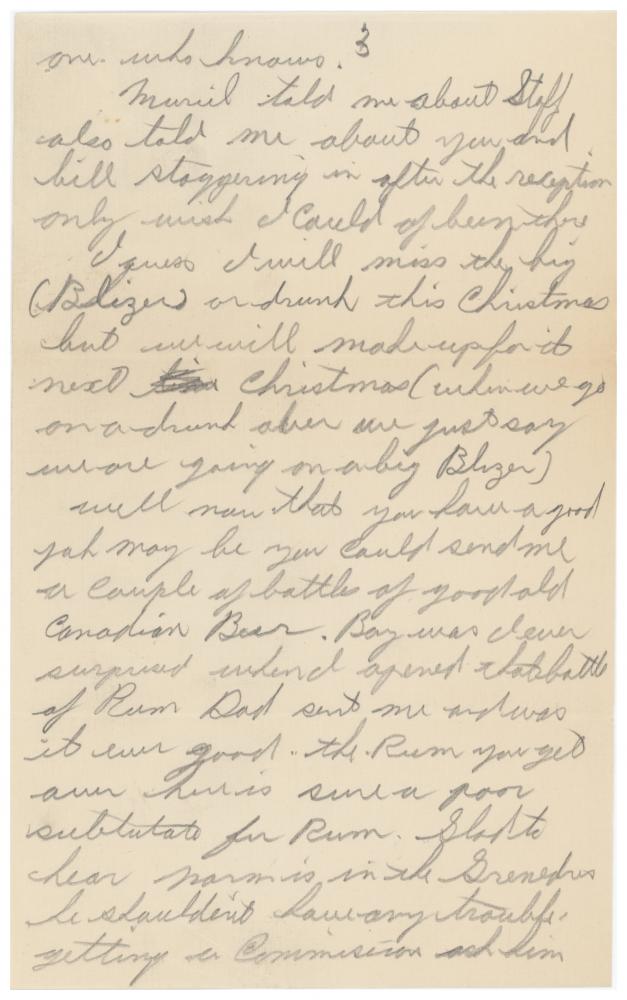 3
one. who knows.
Muriel told me about Staff
also told me about you and
bill staggering in after the reception
only wish I Could of been there
I guess I will miss the big
(Blizer) or drunk this Christmas
but we will make up for it
next Christmas (when we go
on a drunk over we just say
we are going on a big Blizer)
well now that you have a good
jab may be you Could send me
a Couple of bottles of good old
Canadian Beer. Boy was I ever
surprised when I opened that bottle
of Rum Dad sent me and was
it ever good. the Rum you get
over here is sure a poor
subtitute for Rum. Glad to
hear Norm is in the Grenedres
he shouldent have any trouble
getting a Commision ask him